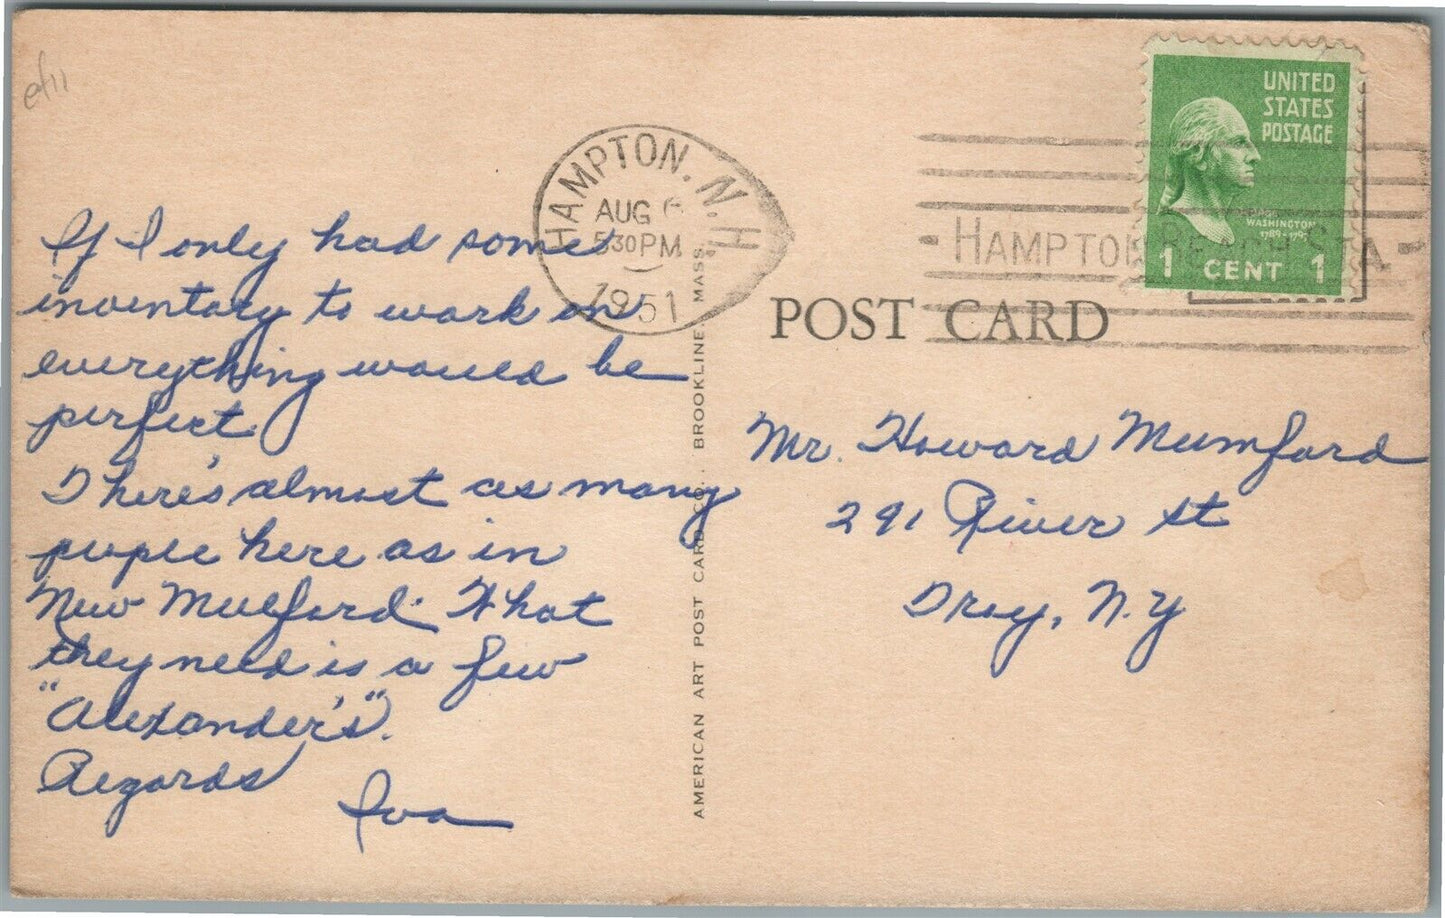 ef11
If I only had some
inventory to work on
everything would be
perfect.
There's almost as many
people here as in
New Mulford. What
they need is a few
"Alexander's".
Regards
Iva
HAMPTON. N.H.
AUG 6
530PM
1951
AMERICAN ART POST CARD CO., BROOKLINE, MASS.
UNITED
STATES
POSTAGE
WASHINGTON
1789-1797
1 CENT 1
HAMPTON BEACH STA.
POST CARD
Mr. Howard Mumford
291 River St
Troy, N.Y